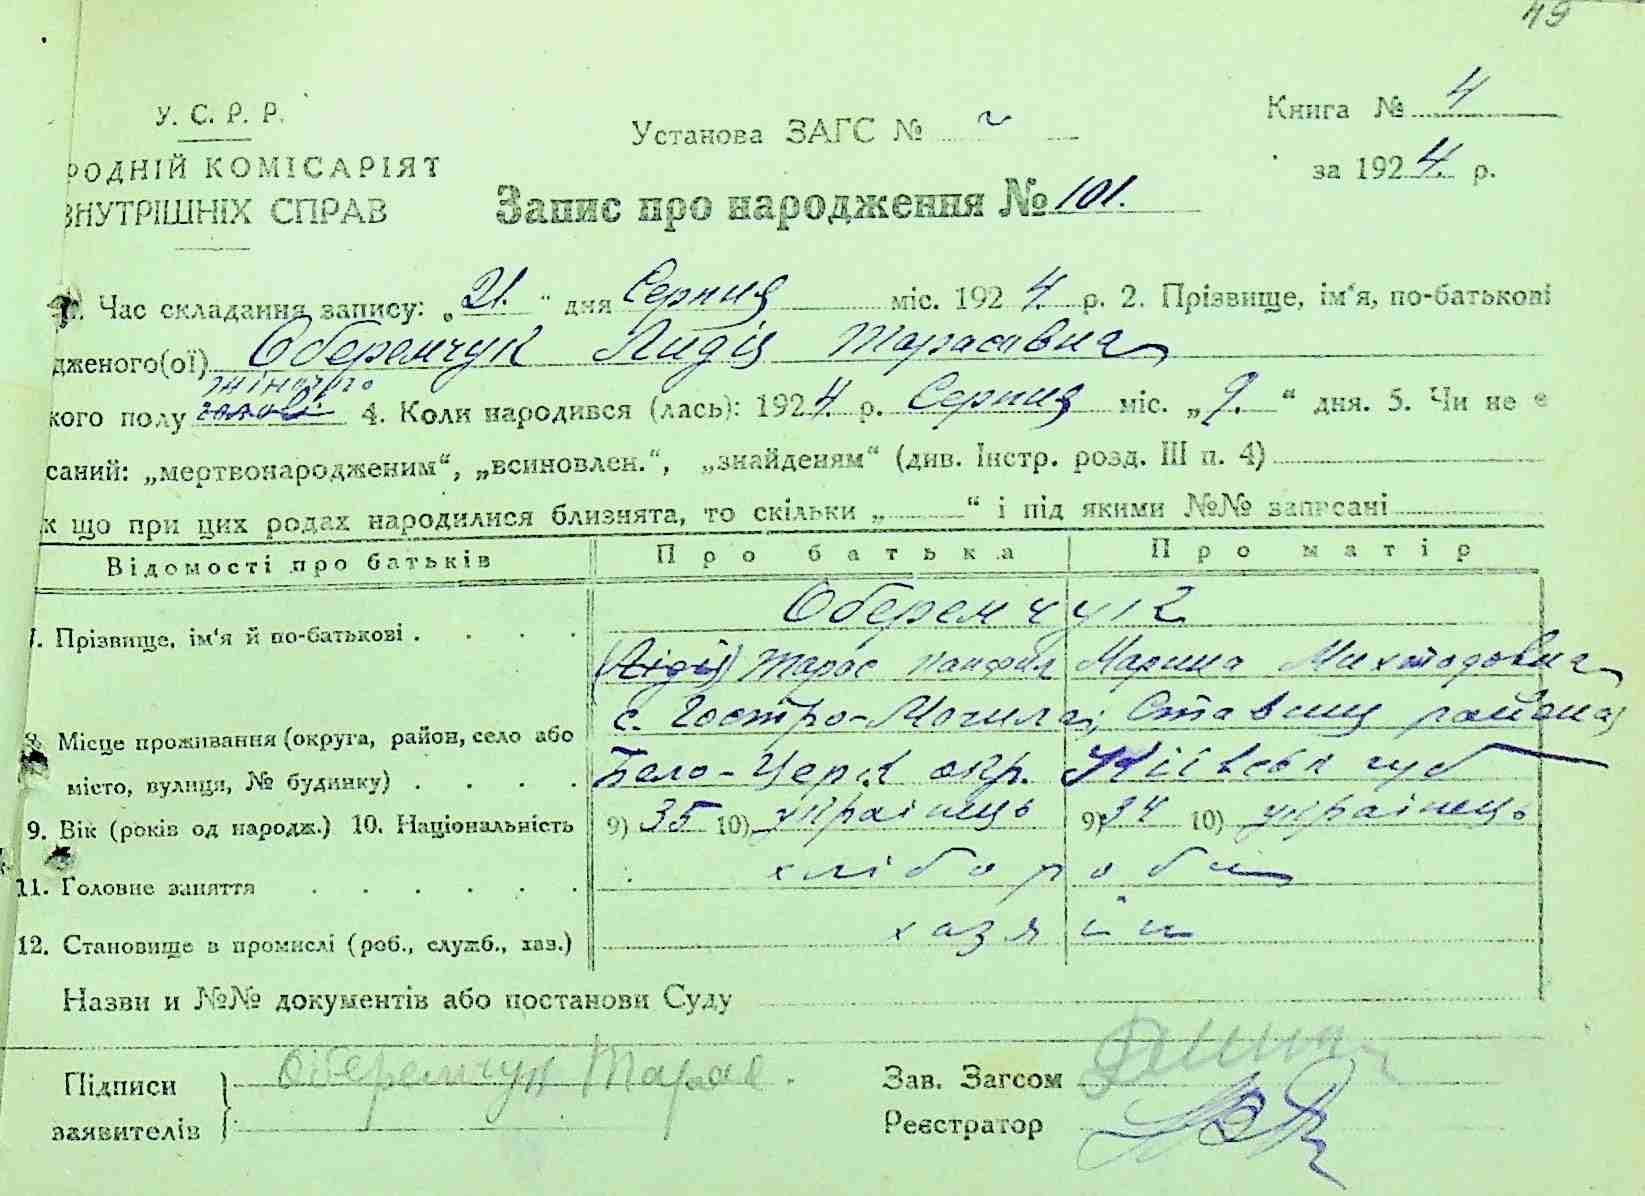 49
У. С. Р. Р.
Книга № 4
Установа ЗАГС №
за 1924. р.
РОДНІЙ КОМІСАРІЯТ
ВНУТРІШНІХ СПРАВ
Запис про народження № 101.
Час складання запису: „21.“ дня Серпня міс. 1924 р. 2. Прізвище, ім‘я, по-батькові
дженого(ої) Оберемчук Лидія Тарасівна
жіночого
кого полу 4. Коли народився (лась): 1924. р. Серпня міс. „9.“ дня. 5. Чи не є
саний: „мертвонародженим“, „всиновлен.“, „знайденям“ (див. Інстр. розд. III п. 4)
к що при цих родах народилися близнята, то скільки „ “ і під якими №№ записані
Відомості про батьків Про батька Про матір
Оберемчук
7. Прізвище, ім‘я й по-батькові . . . .
(Лідія) Тарас Панфил Марина Михтодовна
с. Гостро-Могила, Ставищ района
8. Місце проживання (округа, район, село або
місто, вулиця, № будинку) . . . . Бело-Церк окр. Київськ губ
9. Вік (років од народж.) 10. Національність 9) 35 10) українець 9) 34 10) українець
11. Головне заняття . . . . . . хлібороби
12. Становище в промислі (роб., служб., хаз.) хазяїн
Назви и №№ документів або постанови Суду
Підписи Оберемчук Тарас. Зав. Загсом
заявителів Реєстратор